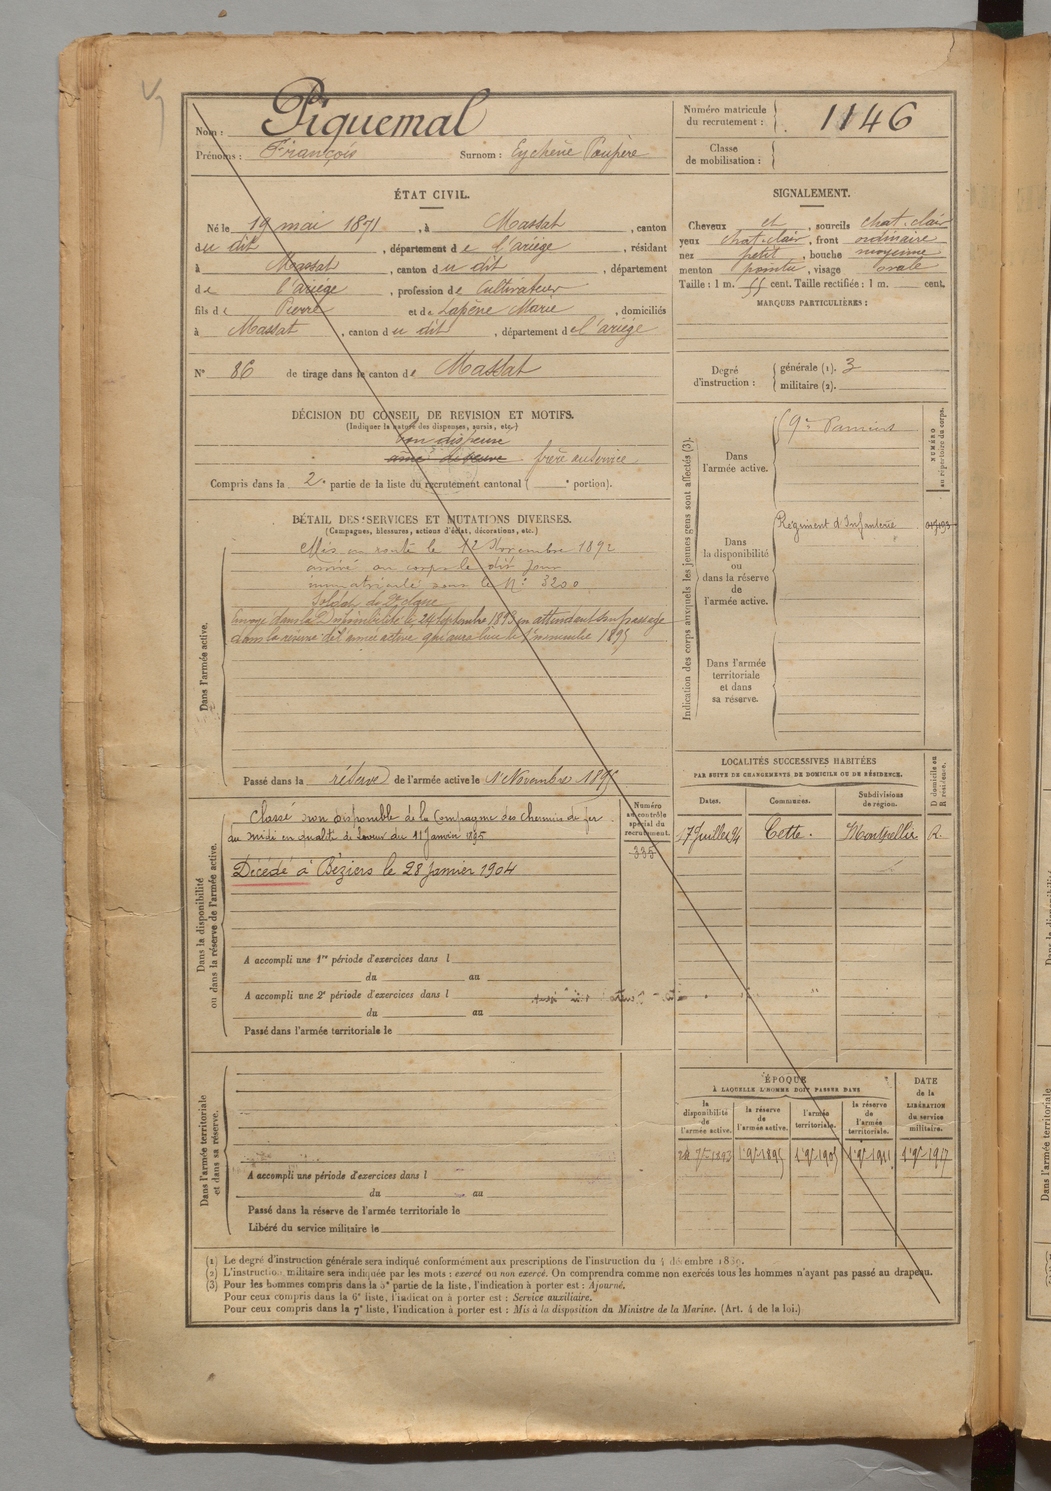 Nom : Piquemal
Prénoms : François Surnom : Eychene Paupère
Numéro matricule
du recrutement : 1146
Classe
de mobilisation :
ÉTAT CIVIL.
Né le 19 mai 1871, à Massat, canton
du dit, département de l'Ariège, résidant
à Massat, canton du dit, département
de l'Ariège, profession de Cultivateur
fils de Pierre et de Lapène Marie, domiciliés
à Massat, canton du dit, département de l'Ariège
SIGNALEMENT.
Cheveux et, sourcils chat. clair
yeux chat. clair, front ordinaire
nez petit, bouche moyenne
menton pointu, visage ovale
Taille : 1 m. 55 cent. Taille rectifiée : 1 m. cent.
MARQUES PARTICULIÈRES :
N° 86 de tirage dans le canton de Massat
Degré
d'instruction :
générale (1). 3
militaire (2).
DÉCISION DU CONSEIL DE REVISION ET MOTIFS.
(Indiquer la nature des dispenses, sursis, etc.)
bon dispense
frère au service
Compris dans la 2e partie de la liste du recrutement cantonal ( e portion).
DÉTAIL DES SERVICES ET MUTATIONS DIVERSES.
(Campagnes, blessures, actions d'éclat, décorations, etc.)
Dans l'armée active.
Mis en route le 12 Novembre 1892
arrivé au corps le dit jour
immatriculé sous le N° 3200
Soldat de 2e classe
Envoyé dans la Disponibilité le 24 Septembre 1893 en attendant son passage
dans la réserve de l'armée active qui aura lieu le 1er novembre 1895
Passé dans la réserve de l'armée active le 1er Novembre 1895
Indication des corps auxquels les jeunes gens sont affectés (3).
NUMÉRO
au répertoire du corps.
Dans
l'armée active.
59e Pamiers
Régiment d'Infanterie
Dans
la disponibilité
ou
dans la réserve
de
l'armée active.
Dans l'armée
territoriale
et dans
sa réserve.
LOCALITÉS SUCCESSIVES HABITÉES
PAR SUITE DE CHANGEMENTS DE DOMICILE OU DE RÉSIDENCE.
D domicile ou
R résidence.
Dates. Communes. Subdivisions
de région.
17 Juillet 94 Cette. Montpellier R.
Dans la disponibilité
ou dans la réserve de l'armée active.
Numéro
au contrôle
spécial du
recrutement.
335
Classé non disponible de la Compagnie des chemins de fer
du midi en qualité de Laveur du 11 Janvier 1895
Décédé à Béziers le 28 Janvier 1904
A accompli une 1re période d'exercices dans l
du au
A accompli une 2e période d'exercices dans l
du au
Passé dans l'armée territoriale le
Dans l'armée territoriale
et dans sa réserve.
A accompli une période d'exercices dans l
du au
Passé dans la réserve de l'armée territoriale le
Libéré du service militaire le
ÉPOQUE
À LAQUELLE L'HOMME DOIT PASSER DANS
DATE
de la
LIBÉRATION
du service
militaire.
la
disponibilité
de
l'armée active.
la réserve
de
l'armée active.
l'armée
territoriale.
la réserve
de
l'armée
territoriale.
24 7bre 1893 1er 9bre 1895 1er 9bre 1905 1er 9bre 1911 1er 9bre 1917
(1) Le degré d'instruction générale sera indiqué conformément aux prescriptions de l'instruction du 4 décembre 1889.
(2) L'instruction militaire sera indiquée par les mots : exercé ou non exercé. On comprendra comme non exercés tous les hommes n'ayant pas passé au drapeau.
(3) Pour les hommes compris dans la 5e partie de la liste, l'indication à porter est : Ajourné.
Pour ceux compris dans la 6e liste, l'indication à porter est : Service auxiliaire.
Pour ceux compris dans la 7e liste, l'indication à porter est : Mis à la disposition du Ministre de la Marine. (Art. 4 de la loi.)